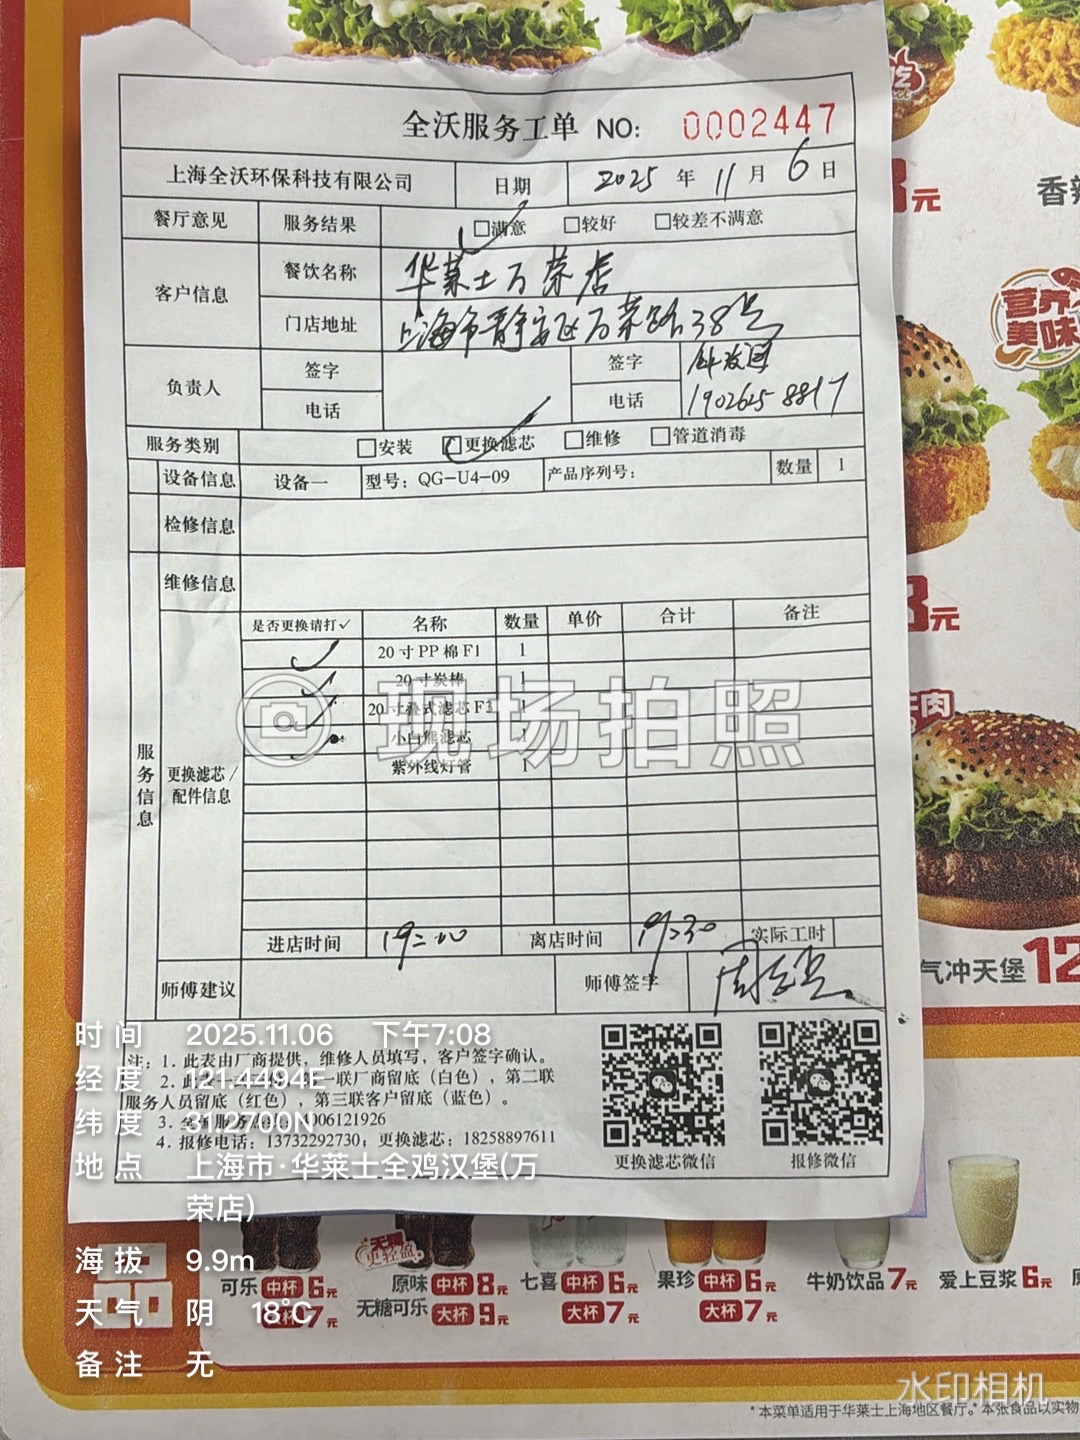 全沃服务工单 NO: 0002447
上海全沃环保科技有限公司 日期 2025 年 11 月 6 日
餐厅意见 服务结果 □满意 □较好 □较差不满意
客户信息 餐饮名称 华莱士万荣店
门店地址 上海市静安区万荣路38号
负责人 签字 签字
电话 电话 19026258817
服务类别 □安装 □更换滤芯 □维修 □管道消毒
设备信息 设备一 型号：QG-U4-09 产品序列号： 数量 1
检修信息
维修信息
是否更换请打✓ 名称 数量 单价 合计 备注
✓ 20寸PP棉F1 1
✓ 20寸炭棒 1
✓ 20寸叠式滤芯F3 1
小白熊滤芯 1
紫外线灯管 1
服务信息
更换滤芯/
配件信息
现场拍照
进店时间 19:00 离店时间 19:30 实际工时
师傅建议 师傅签字
注：1. 此表由厂商提供，维修人员填写，客户签字确认。
一联厂商留底（白色），第二联
服务人员留底（红色），第三联客户留底（蓝色）。
006121926
4. 报修电话：13732292730；更换滤芯：18258897611
更换滤芯微信 报修微信
时间 2025.11.06 下午7:08
经度 121.4494E
纬度 31.2700N
地点 上海市·华莱士全鸡汉堡(万
荣店)
海拔 9.9m
天气 阴 18℃
备注 无
元
香辣
营养
美味
元
牛肉
气冲天堡 12
可乐 中杯 6元
大杯 7元
原味 中杯 8元
无糖可乐 大杯 9元
七喜 中杯 6元
大杯 7元
果珍 中杯 6元
大杯 7元
牛奶饮品 7元
爱上豆浆 6元
水印相机
*本菜单适用于华莱士上海地区餐厅。*本张食品以实物